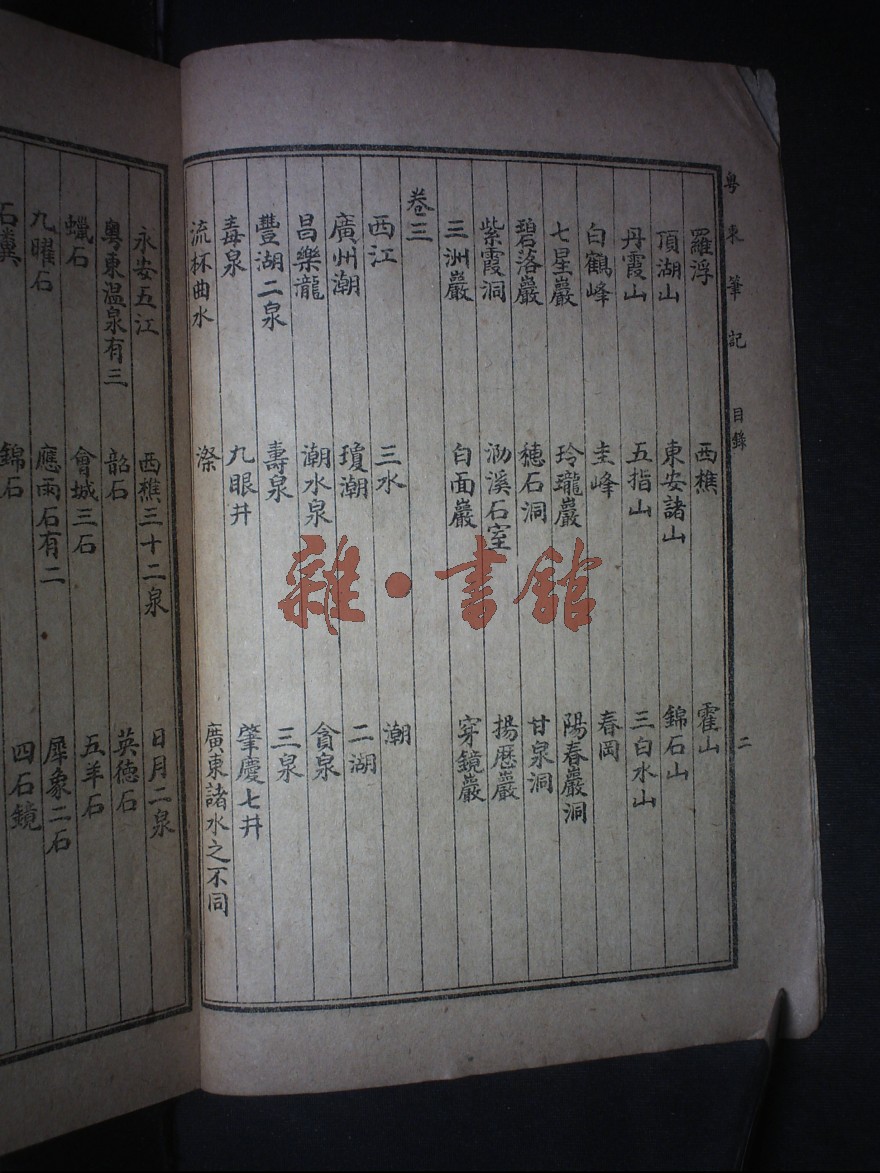 粵東筆記 目錄 二
羅浮 西樵 霍山
頂湖山 東安諸山 錦石山
丹霞山 五指山 三白水山
白鶴峰 圭峰 春岡
七星巖 玲瓏巖 陽春巖洞
碧落巖 穗石洞 甘泉洞
紫霞洞 泐溪石室 揚歷巖
三洲巖 白面巖 穿鏡巖
卷三
西江 三水 潮
廣州潮 瓊潮 二湖
昌樂瀧 潮水泉 貪泉
豐湖二泉 壽泉 三泉
毒泉 九眼井 肇慶七井
流杯曲水 漈 廣東諸水之不同
永安五江 西樵三十二泉 日月二泉
粵東温泉有三 韶石 英德石
蠟石 會城三石 五羊石
九曜石 應雨石有二 犀象二石
石糞 錦石 四石鏡
雜·書館